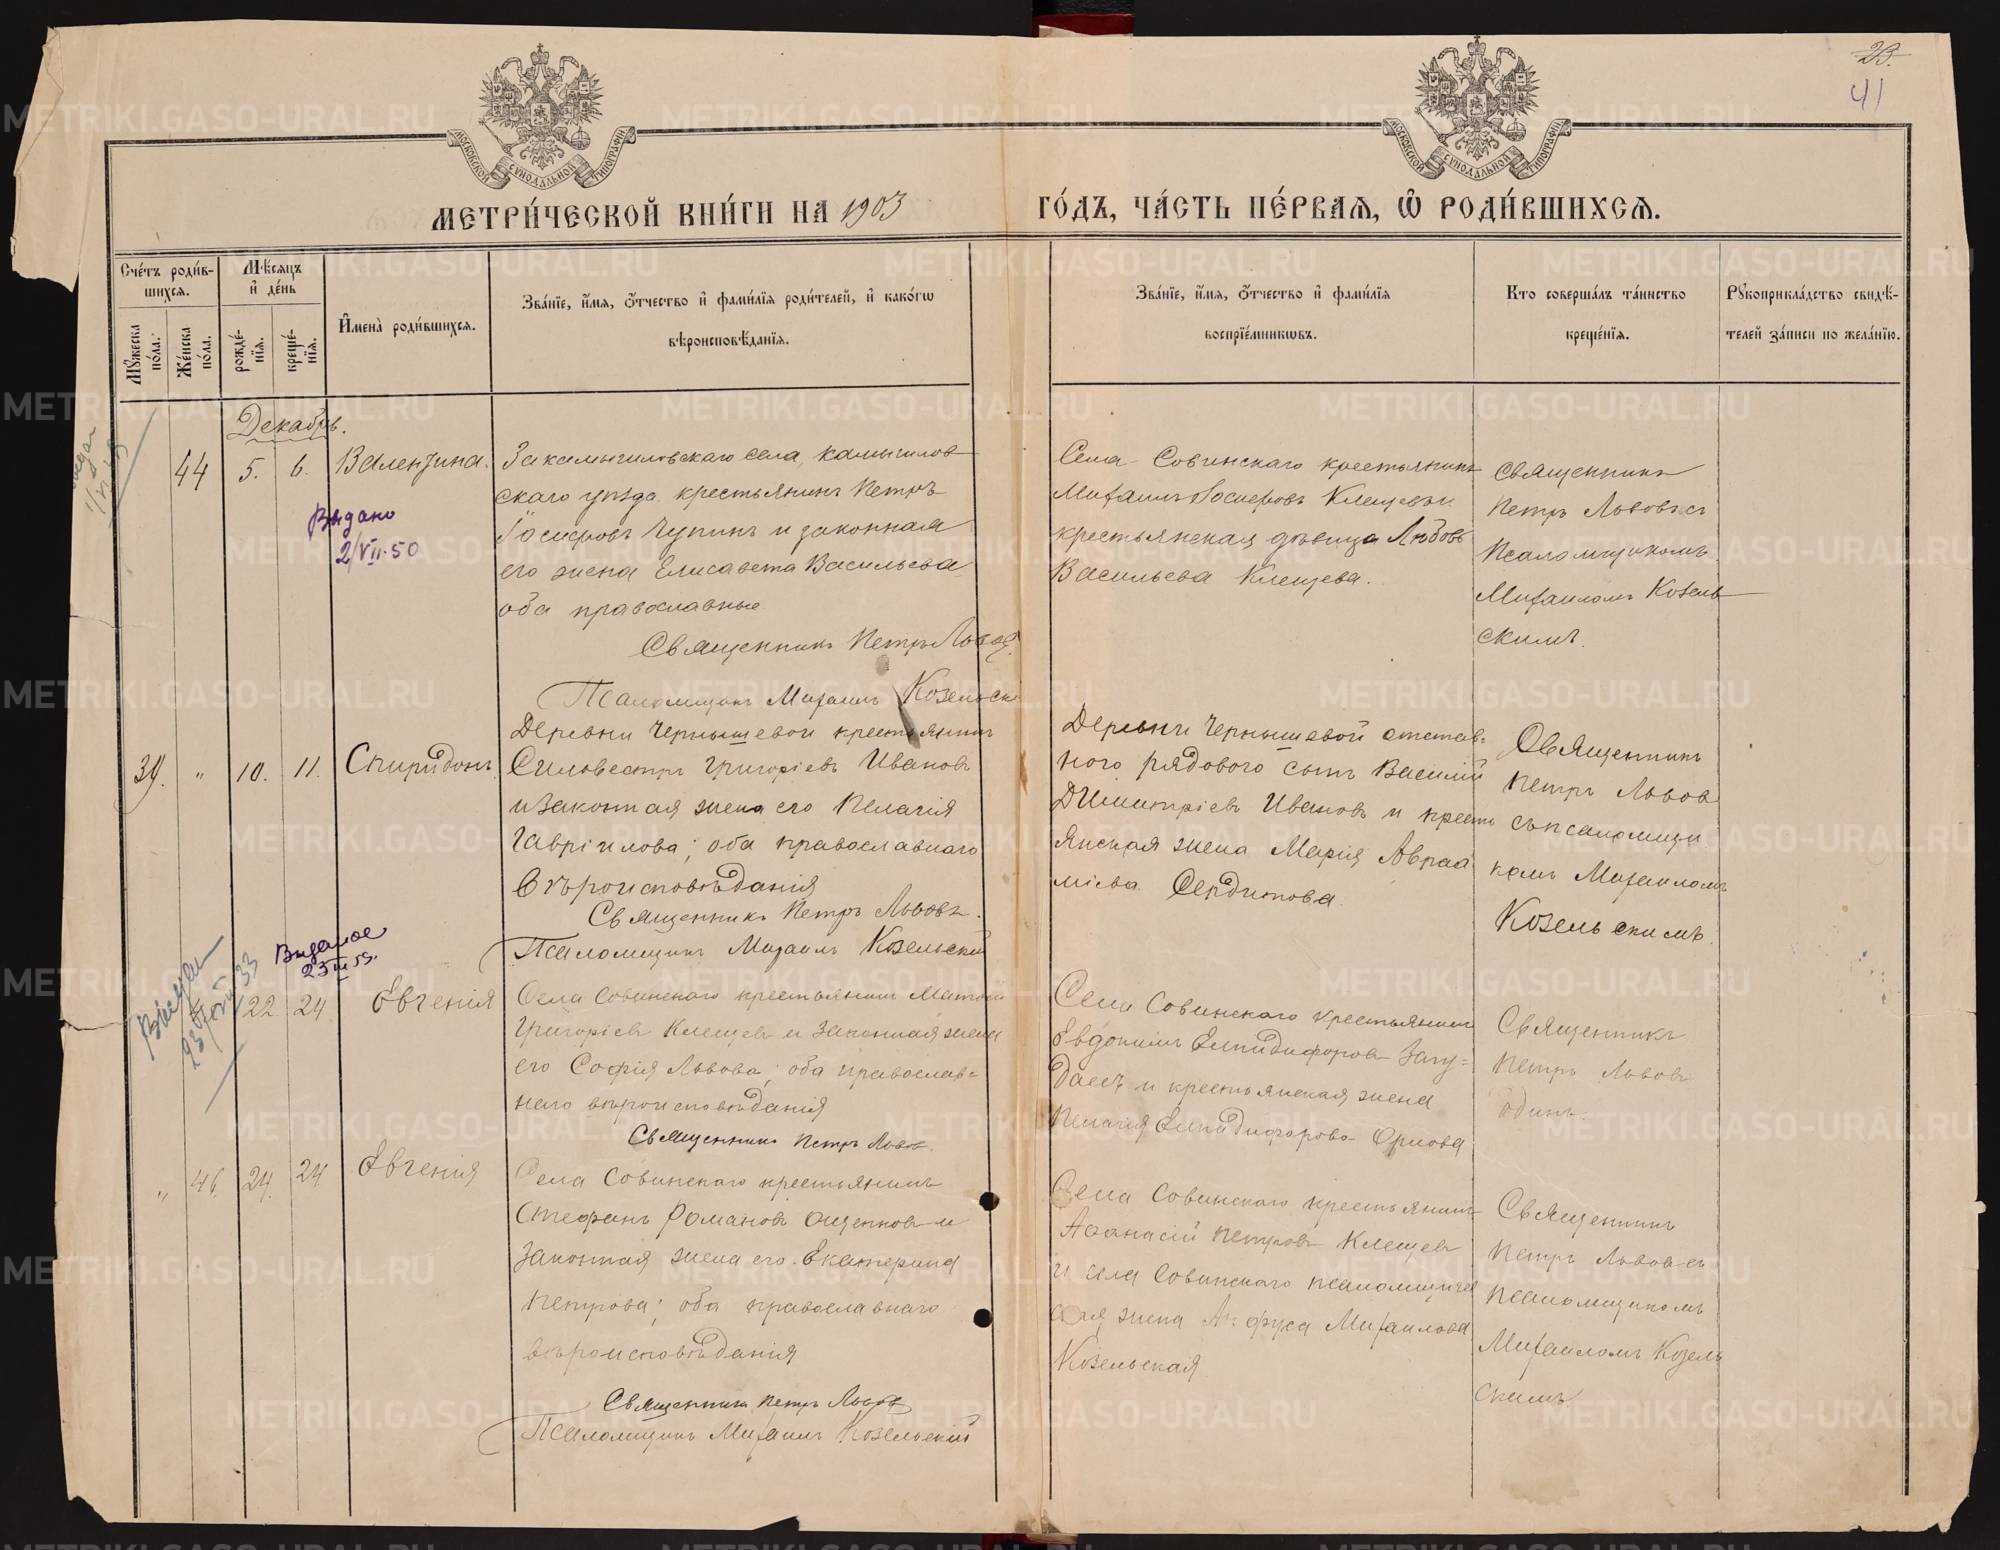 23.
41
МОСКОВСКОЙ СѴНОДАЛЬНОЙ ТИПОГРАФІИ
МОСКОВСКОЙ СѴНОДАЛЬНОЙ ТИПОГРАФІИ
МЕТРИ́ЧЕСКОЙ КНИ́ГИ НА 1903 ГО́ДЪ, ЧА́СТЬ ПЕ́РВАѦ, Ѡ РОДИ́ВШИХСѦ.
Сче́тъ роди́в-
шихсѧ.
Мꙋ́жеска по́ла.
Же́нска по́ла.
Мѣ́сѧцъ и҆ де́нь
рожде́-нїѧ.
креще́-нїѧ.
И҆мена̀ роди́вшихсѧ.
Зва́нїе, и҆́мѧ, ѻ҆́тчество и҆ фами́лїѧ роди́телей, и҆ како́гѡ
вѣроисповѣ́данїѧ.
Зва́нїе, и҆́мѧ, ѻ҆́тчество и҆ фами́лїѧ
воспрїе́мникѡвъ.
Кто соверша́лъ та́инство
креще́нїѧ.
Рꙋкоприкла́дство свидѣ́-
телей за́писи по жела́нїю.
Декабрь.
44 5. 6. Валентина.
Выдано
2/VII-50
Закамышловскаго села, камышлов-
скаго уѣзда крестьянинъ Петръ
Іосифовъ Чупинъ и законная
его жена Елисавета Васильева
оба православные
Священникъ Петръ Львовъ.
Псаломщикъ Михаилъ Козельскі
Села Совинскаго крестьянинъ
Михаилъ Іосифовъ Клещевъ и
крестьянская дѣвица Любовь
Васильева Клещева.
Священникъ
Петръ Львовъ съ
Псаломщикомъ
Михаиломъ Козель
скимъ.
39. " 10. 11. Спиридонъ
Деревни Чернышевой крестьянинъ
Сильвестръ Григоріевъ Ивановъ
и законная жена его Пелагія
Гавріилова; оба православнаго
вѣроисповѣданія
Священникъ Петръ Львовъ.
Псаломщикъ Михаилъ Козельскій
Деревни Чернышевой отстав-
ного рядового сынъ Василій
Дмитріевъ Ивановъ и кресть
янская жена Марія Авраа
міева Сердитова.
Священникъ
Петръ Львов
съ псаломщи
комъ Михаиломъ
Козельскимъ.
Выданое
23 III 59.
Выдан
22. 24 Евгенія
Села Совинскаго крестьянинъ Матвѣй
Григоріевъ Клещевъ и законная жена
его Софія Львова; оба православ-
наго вѣроисповѣданія
Священникъ Петръ Львов.
Села Совинскаго крестьянинъ
Евдокимъ Елпидифоровъ
и крестьянская жена
Пелагія Елпидифорова Орлова
Священникъ
Петръ Львовъ
одинъ
" 46. 24. 24 Евгенія
Села Совинскаго крестьянинъ
Стефанъ Романовъ Ощепковъ и
законная жена его Екатерина
Петрова; оба православнаго
вѣроисповѣданія
Священникъ Петръ Львовъ
Псаломщикъ Михаилъ Козельскій
Села Совинскаго крестьянинъ
Аѳанасій Петровъ Клещевъ
и села Совинскаго псаломщиче
ская жена Анфуса Михаилова
Козельская
Священникъ
Петръ Львовъ съ
Псаломщикомъ
Михаиломъ Козель
скимъ
METRIKI.GASO-URAL.RU